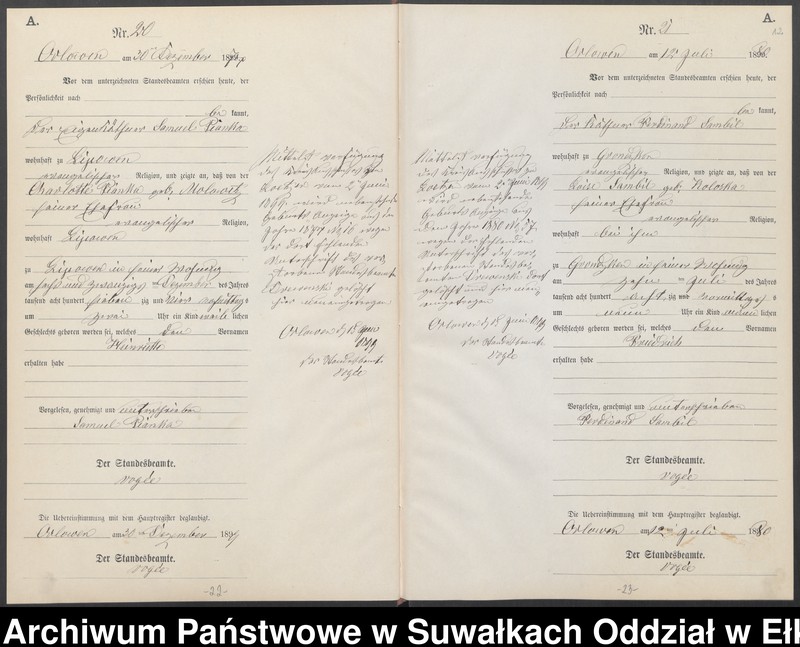 A.
Nr. 20
Orlowen am 30 Dezember 1879
Vor dem unterzeichneten Standesbeamten erschien heute, der
Persönlichkeit nach
be kannt,
der Eigenkäthner Samuel Pianka
wohnhaft zu Lipowen
evangelischer Religion, und zeigte an, daß von der
Charlotte Pianka geb.
seiner Ehefrau
evangelischer Religion,
wohnhaft Lipowen
zu Lipowen in seiner Wohnung
am sechs und zwanzigsten Dezember des Jahres
tausend acht hundert siebenzig und neun
um zwei Uhr ein Kind weiblichen
Geschlechts geboren worden sei, welches den Vornamen
Henriette
erhalten habe
Vorgelesen, genehmigt und unterschrieben
Samuel Pianka
Der Standesbeamte.
Vogée
Die Uebereinstimmung mit dem Hauptregister beglaubigt.
Orlowen am 30 Dezember 1879
Der Standesbeamte.
Vogée
-22-
Mittelst Verfügung
des Königlichen
Loetzen vom 2 Juni
1899 wird
Geburts Anzeige aus dem
Jahre 1879 wegen
der dort fehlenden
Unterschrift des ver-
storbenen Standesbeamten
gelöscht
hier neu eingetragen
Orlowen d 18 Juni
1899
Der Standesbeamte
Vogée
Mittelst Verfügung
des Königlichen
Loetzen vom 2 Juni 1899
wird
Geburts Anzeige aus
dem Jahre 1880 No 57
wegen der fehlenden
Unterschrift des ver-
storbenen Standesbe-
amten dort
gelöscht und hier neu
eingetragen
Orlowen d 18 Juni 1899
Der Standesbeamte
Vogée
A.
Nr. 21
Orlowen am 12 Juli 1880
Vor dem unterzeichneten Standesbeamten erschien heute, der
Persönlichkeit nach
be kannt,
der Käthner Ferdinand Sambil
wohnhaft zu Gronsken
evangelischer Religion, und zeigte an, daß von der
Luise Sambil geb. Koloska
seiner Ehefrau
evangelischer Religion,
wohnhaft bei ihm
zu Gronsken in seiner Wohnung
am zehn ten Juli des Jahres
tausend acht hundert achtzig und vormittags
um neun Uhr ein Kind männlichen
Geschlechts geboren worden sei, welches den Vornamen
Friedrich
erhalten habe
Vorgelesen, genehmigt und unterschrieben
Ferdinand Sambil
Der Standesbeamte.
Vogée
Die Uebereinstimmung mit dem Hauptregister beglaubigt.
Orlowen am 12 Juli 1880
Der Standesbeamte.
Vogée
-23-
Archiwum Państwowe w Suwałkach Oddział w Ełk